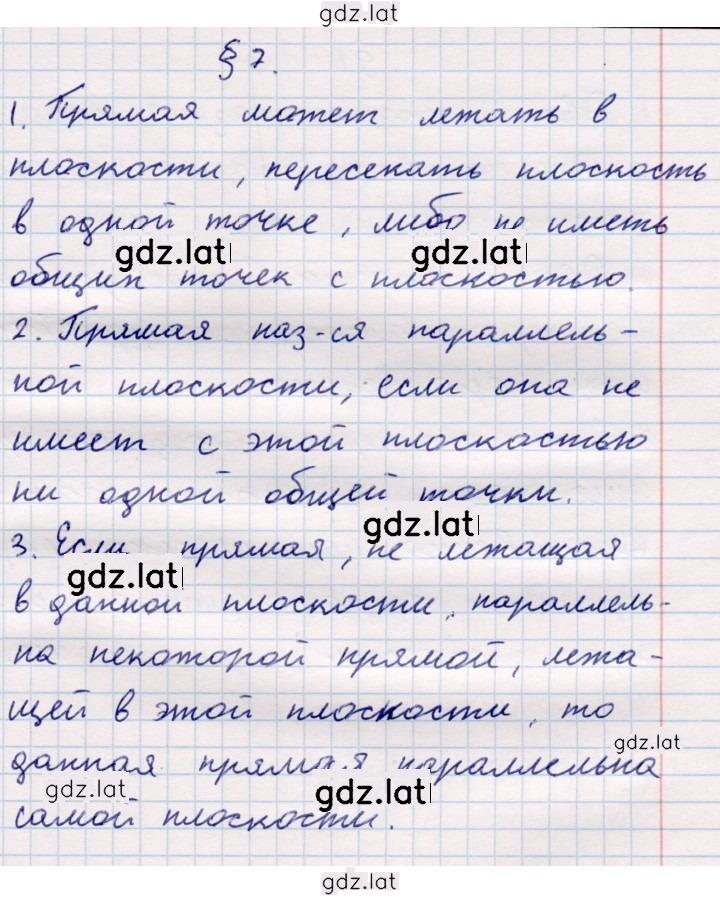 gdz.lat
§ 7.
1. Прямая может лежать в
плоскости, пересекать плоскость
в одной точке, либо не иметь
gdz.lat
gdz.lat
общих точек с плоскостью.
2. Прямая наз-ся параллель-
ной плоскости, если она не
имеет с этой плоскостью
ни одной общей точки.
gdz.lat
3. Если прямая, не лежащая
gdz.lat
в данной плоскости, параллель-
на некоторой прямой, лежа-
щей в этой плоскости, то
gdz.lat
данная прямая параллельна
gdz.lat
gdz.lat
самой плоскости.
gdz.lat